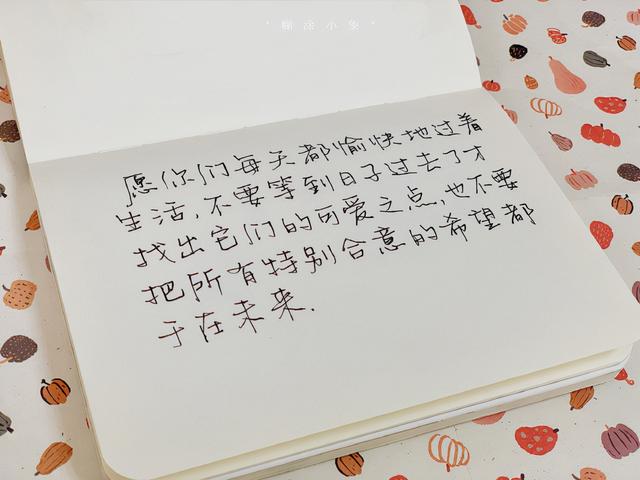 '糊涂小象'
愿你们每天都愉快地过着
生活,不要等到日子过去了才
找出它们的可爱之点,也不要
把所有特别合意的希望都
于在未来.